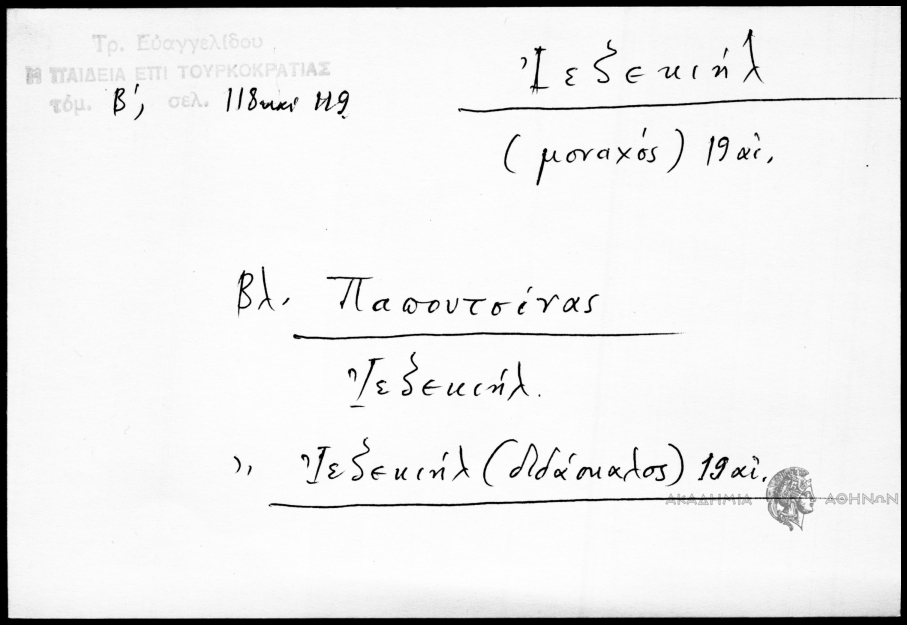 Τρ. Εὐαγγελίδου,
Η ΠΑΙΔΕΙΑ ΕΠΙ ΤΟΥΡΚΟΚΡΑΤΙΑΣ
τόμ. Β', σελ. 118 καί 119
Ἰεζεκιήλ
(μοναχός) 19 αἰ.
Βλ. Παπουτσίνας
Ἰεζεκιήλ.
〃 Ἰεζεκιήλ (διδάσκαλος) 19 αἰ.
ΑΚΑΔΗΜΙΑ ΑΘΗΝΩΝ